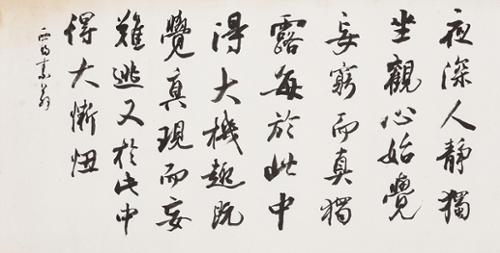 夜深人靜獨
坐觀心始覺
妄窮而真獨
露每於此中
得大機趣既
覺真現而妄
難逃又於此中
得大慚忸